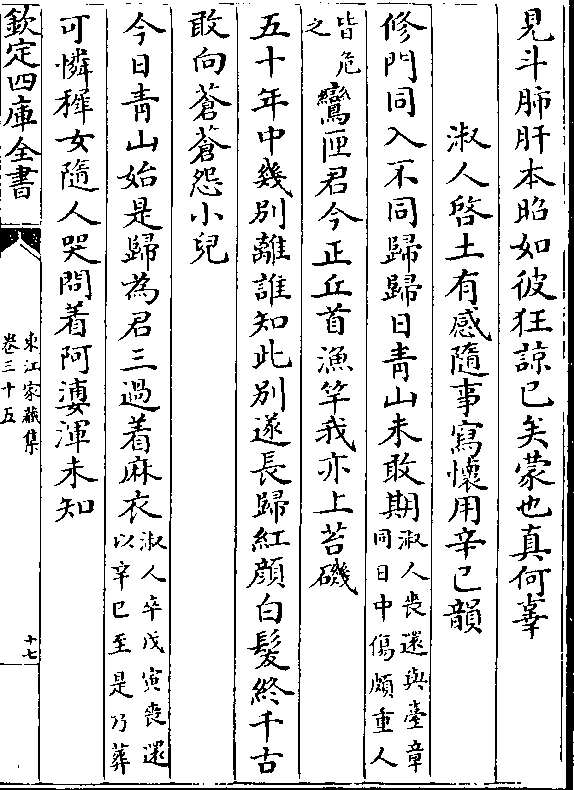 見斗肺肝本昭如彼狂諒已矣蒙也真何辜
淑人啓土有感隨事寫懷用辛已韻
修門同入不同歸歸日青山未敢期淑人喪還與臺章同日中傷頗重人
皆危之鸞匣君今正丘首漁竿我亦上苔磯
五十年中幾別離誰知此別遂長歸紅顔白髮終千古
敢向蒼蒼怨小兒
今日青山始是歸為君三過着麻衣淑人卒戊寅喪還以辛巳至是乃葬
可憐穉女隨人哭問着阿㜑渾未知
欽定四庫全書
東江家藏集
卷三十五
十七